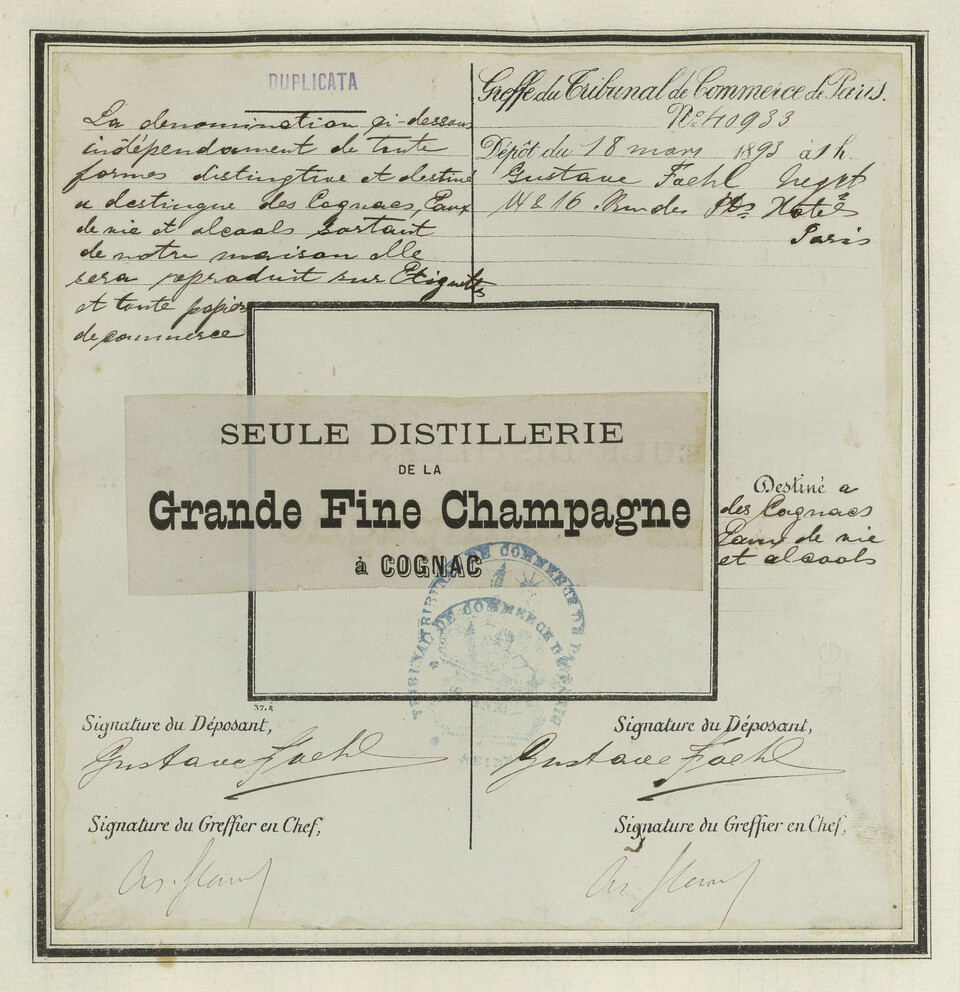 DUPLICATA
La denomination ci-dessous
indépendament de toute
formes distingtive et destiné
a destingue des Cognacs, Eaux
de vie et alcools Sortant
de notre maison elle
sera reproduit sur Etiquettes
et toute papier
de commerce
Greffe du Tribunal de Commerce de Paris.
No 40933
Dépôt du 18 mars 1893 à 1 h.
Gustave Faehl Negt
14 & 16 Rue des Ptes Hotels
Paris
SEULE DISTILLERIE
DE LA
Grande Fine Champagne
à COGNAC
Destiné a
des Cognacs
Eaux de vie
et alcools
TRIBUNAL DE COMMERCE DE PARIS
37.R
Signature du Déposant,
Gustave Faehl
Signature du Greffier en Chef,
Signature du Déposant,
Gustave Faehl
Signature du Greffier en Chef,